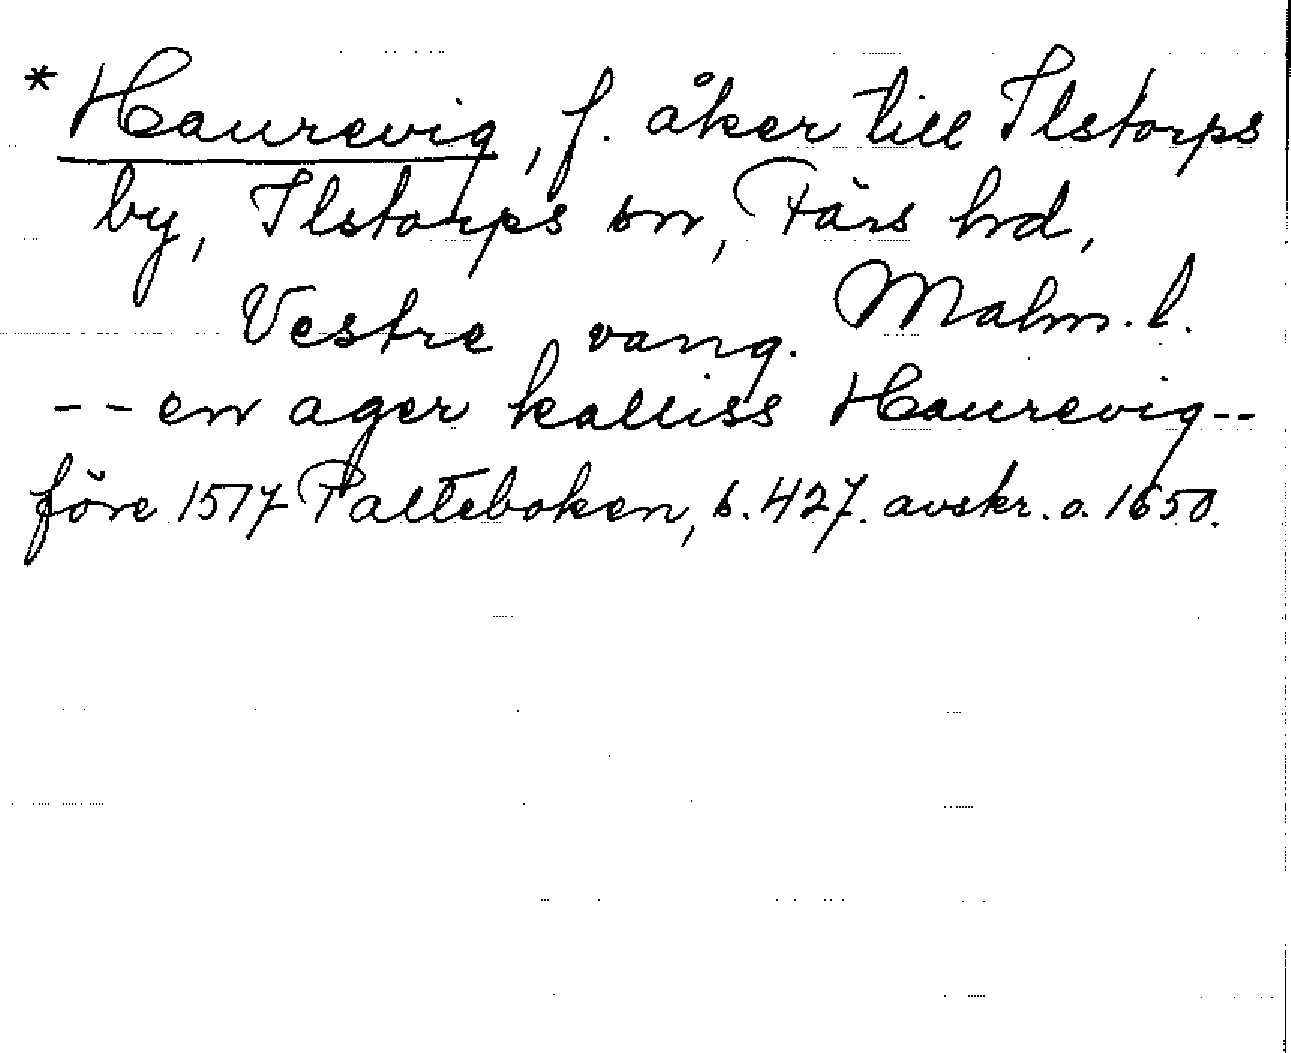 * Haurevig, f. åker till Ilstorps
by, Ilstorps sn, Färs hrd,
Vestre vang. Malm. l.
-- en ager kalliss Haurevig --
före 1517 Palteboken, s. 427. avskr. o. 1650.